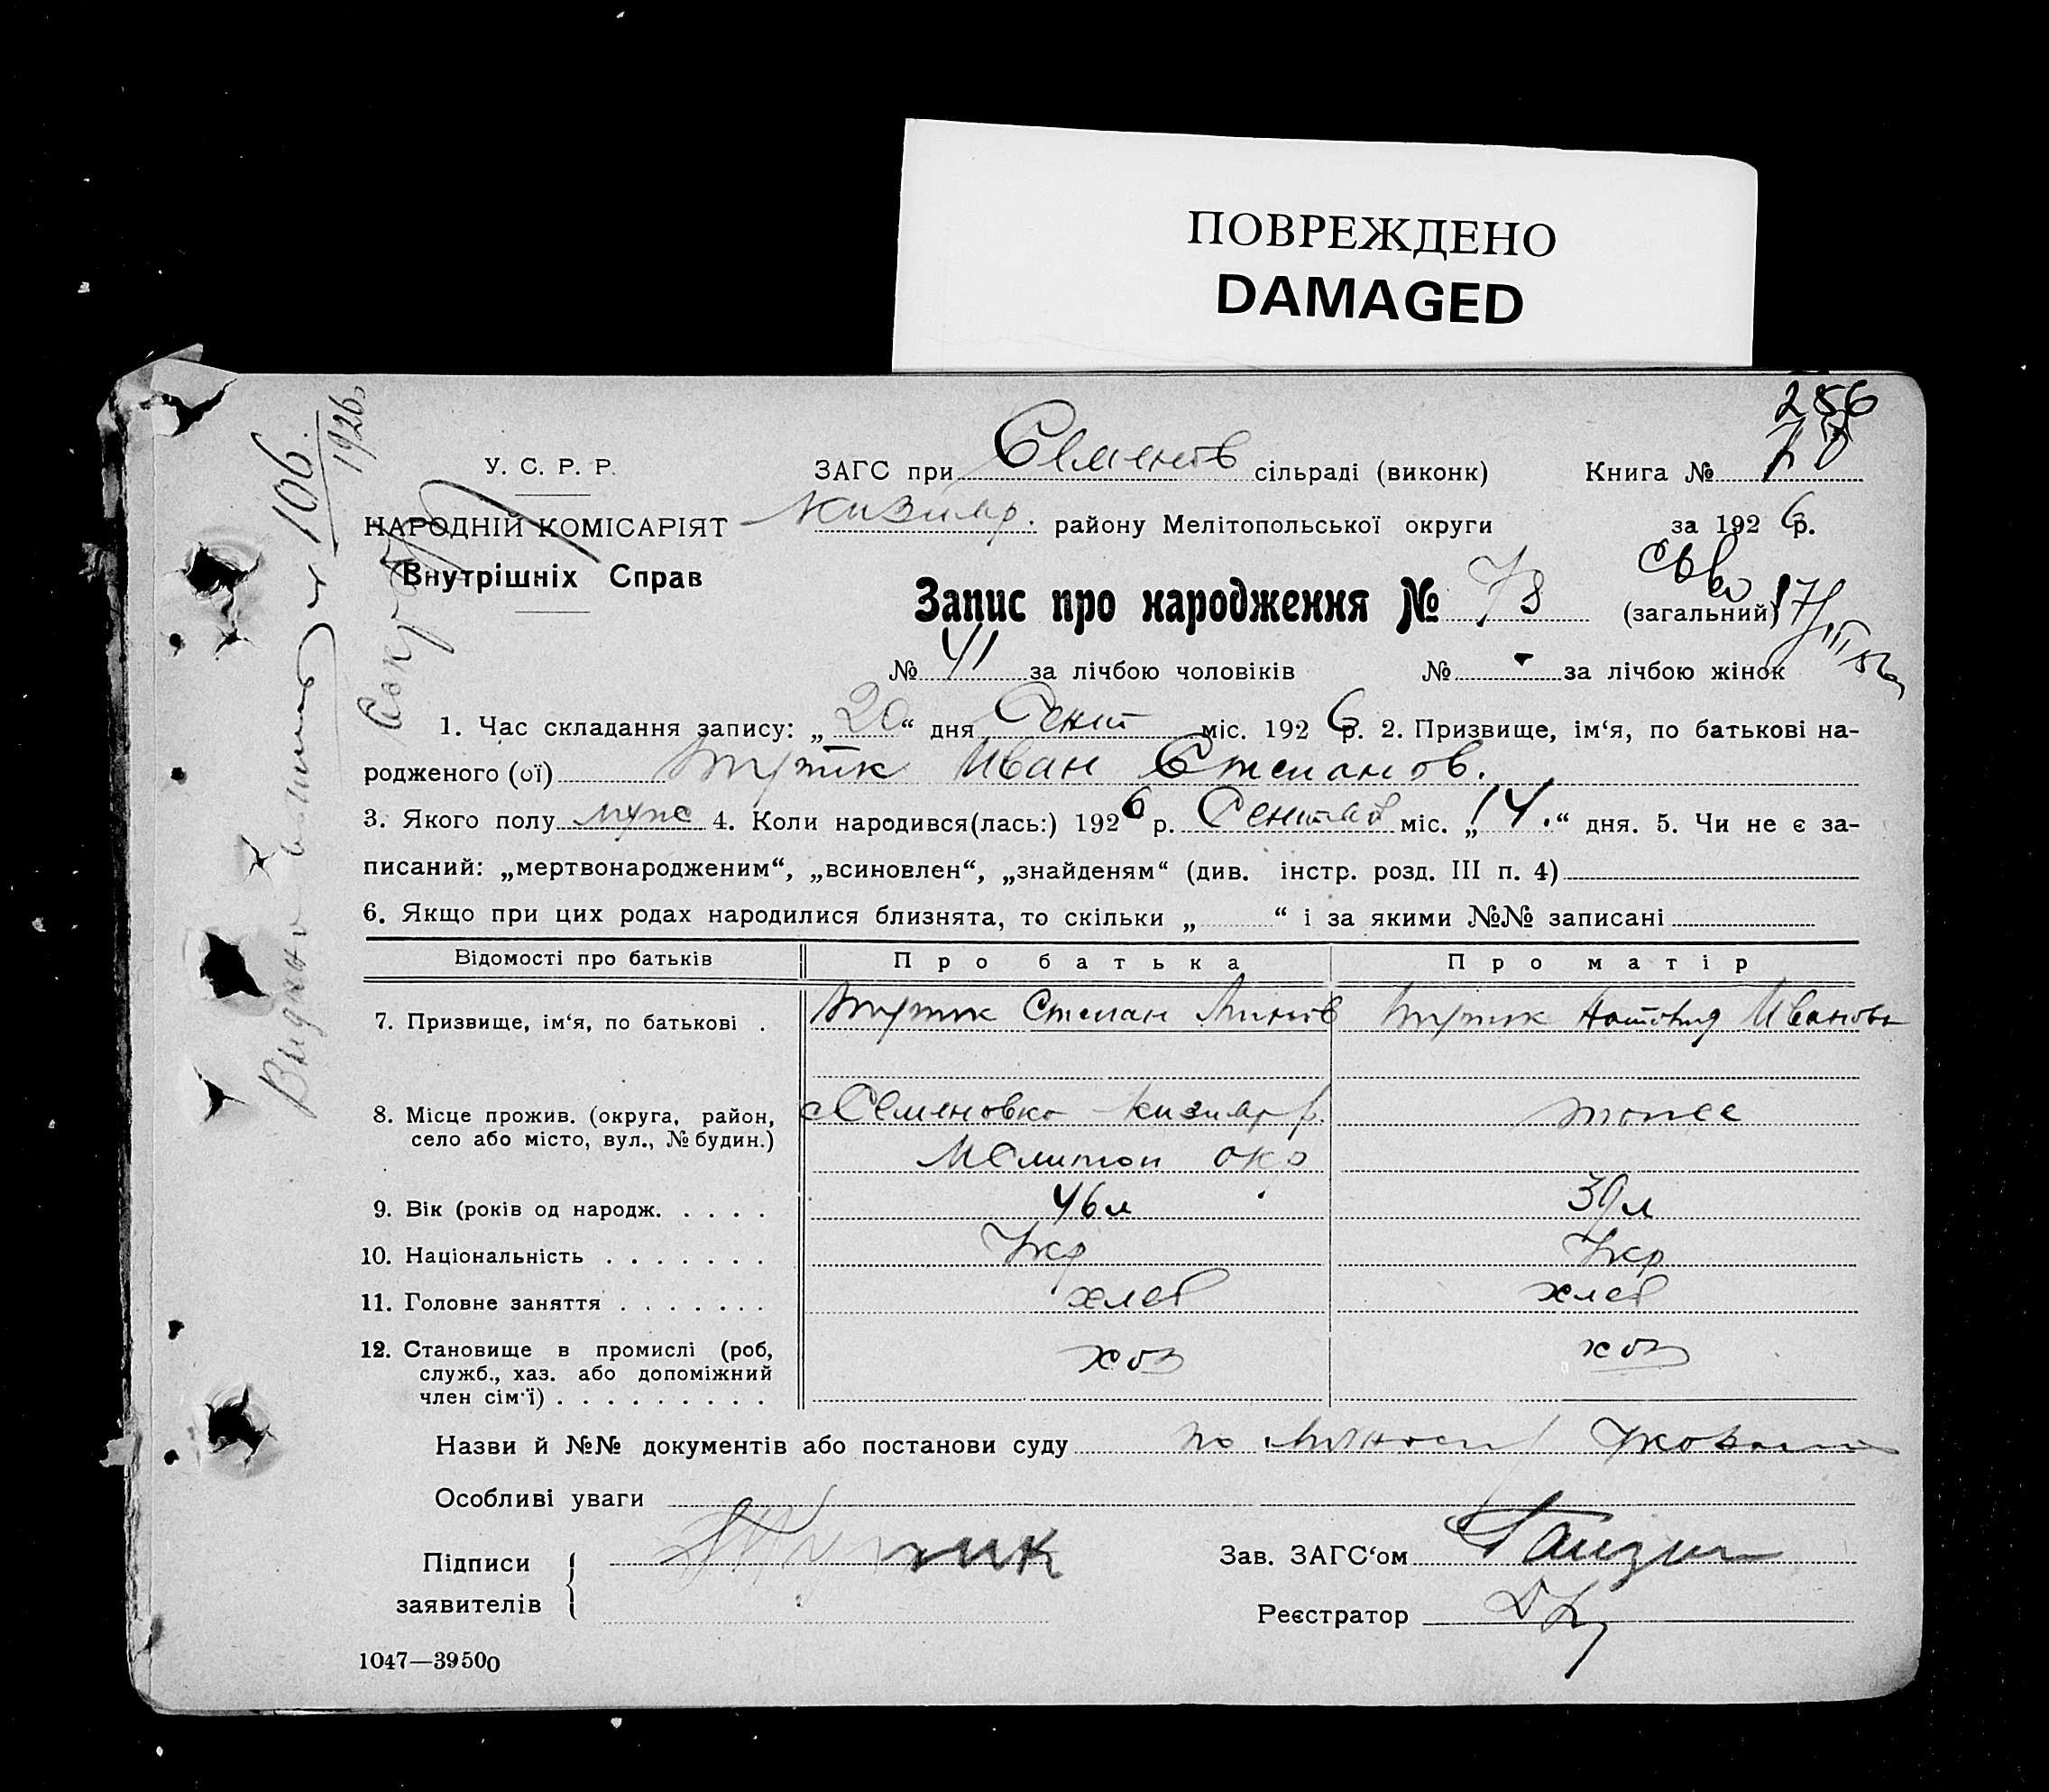 ПОВРЕЖДЕНО
DAMAGED
256
У. С. Р. Р.
ЗАГС при Семенов сільраді (виконк) Книга №
НАРОДНІЙ КОМІСАРІЯТ Кизияр. району Мелітопольської округи за 1926 р.
Внутрішніх Справ
Запис про народження № 78 (загальний)
№ 41 за лічбою чоловіків № - за лічбою жінок
1. Час складання запису: „20“ дня Сент міс. 1926 р. 2. Призвище, ім‘я, по батькові на-
родженого (ої) Иван Степанов.
3. Якого полу муж 4. Коли народився(лась:) 1926 р. Сентяб міс. „14.“ дня. 5. Чи не є за-
писаний: „мертвонародженим“, „всиновлен“, „знайденям“ (див. інстр. розд. III п. 4)
6. Якщо при цих родах народилися близнята, то скільки „ “ і за якими №№ записані
Відомості про батьків Про батька Про матір
7. Призвище, ім‘я, по батькові . Степан Иванов
8. Місце прожив. (округа, район, Семеновка Кизияр р. тоже
село або місто, вул., № будин.) Мелитоп окр
9. Вік (років од народж. . . . . 46 л 39 л
10. Національність . . . . . . . Укр Укр
11. Головне заняття . . . . . . . хлеб хлеб
12. Становище в промислі (роб, хоз хоз
служб., хаз. або допоміжний
член сім‘ї) . . . . . . . . .
Назви й №№ документів або постанови суду по
Особливі уваги
Підписи Зав. ЗАГС‘ом
заявителів Реєстратор
1047—39500
106
1926